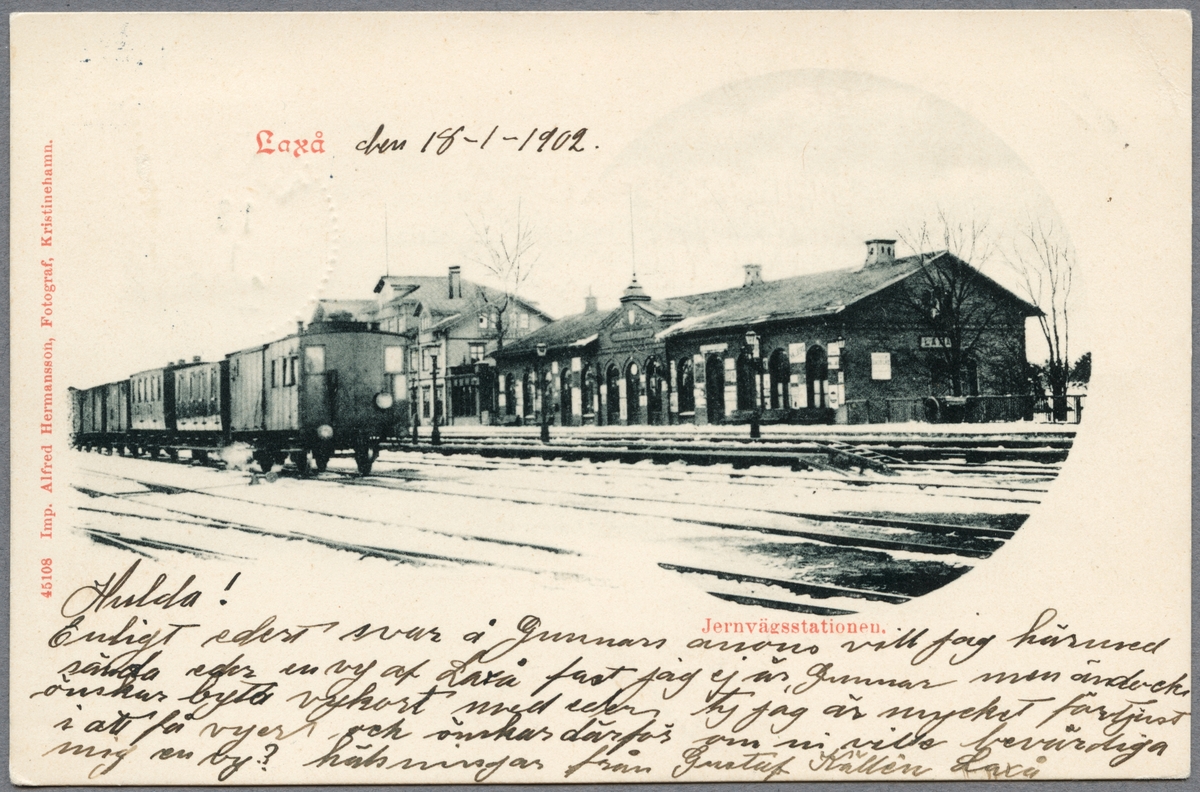 Laxå den 18-1-1902.
LAXÅ
45108 Imp. Alfred Hermansson, Fotograf, Kristinehamn.
Jernvägsstationen.
Hulda!
Enligt edert svar å Gunnars anons vill jag härmed
sända eder en vy af Laxå fast jag ej är Gunnar men ändock
önskar byta vykort med eder, ty jag är mycket förtjust
i att få vyer och önskar därför om ni ville bevärdiga
mig en vy? hälsningar från Gustaf Källén Laxå